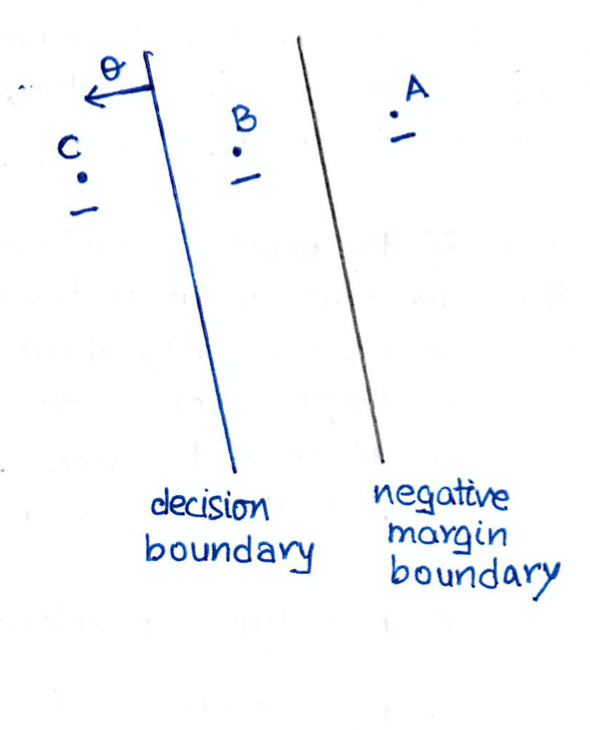 θ
A
B
C
decision
boundary
negative
margin
boundary